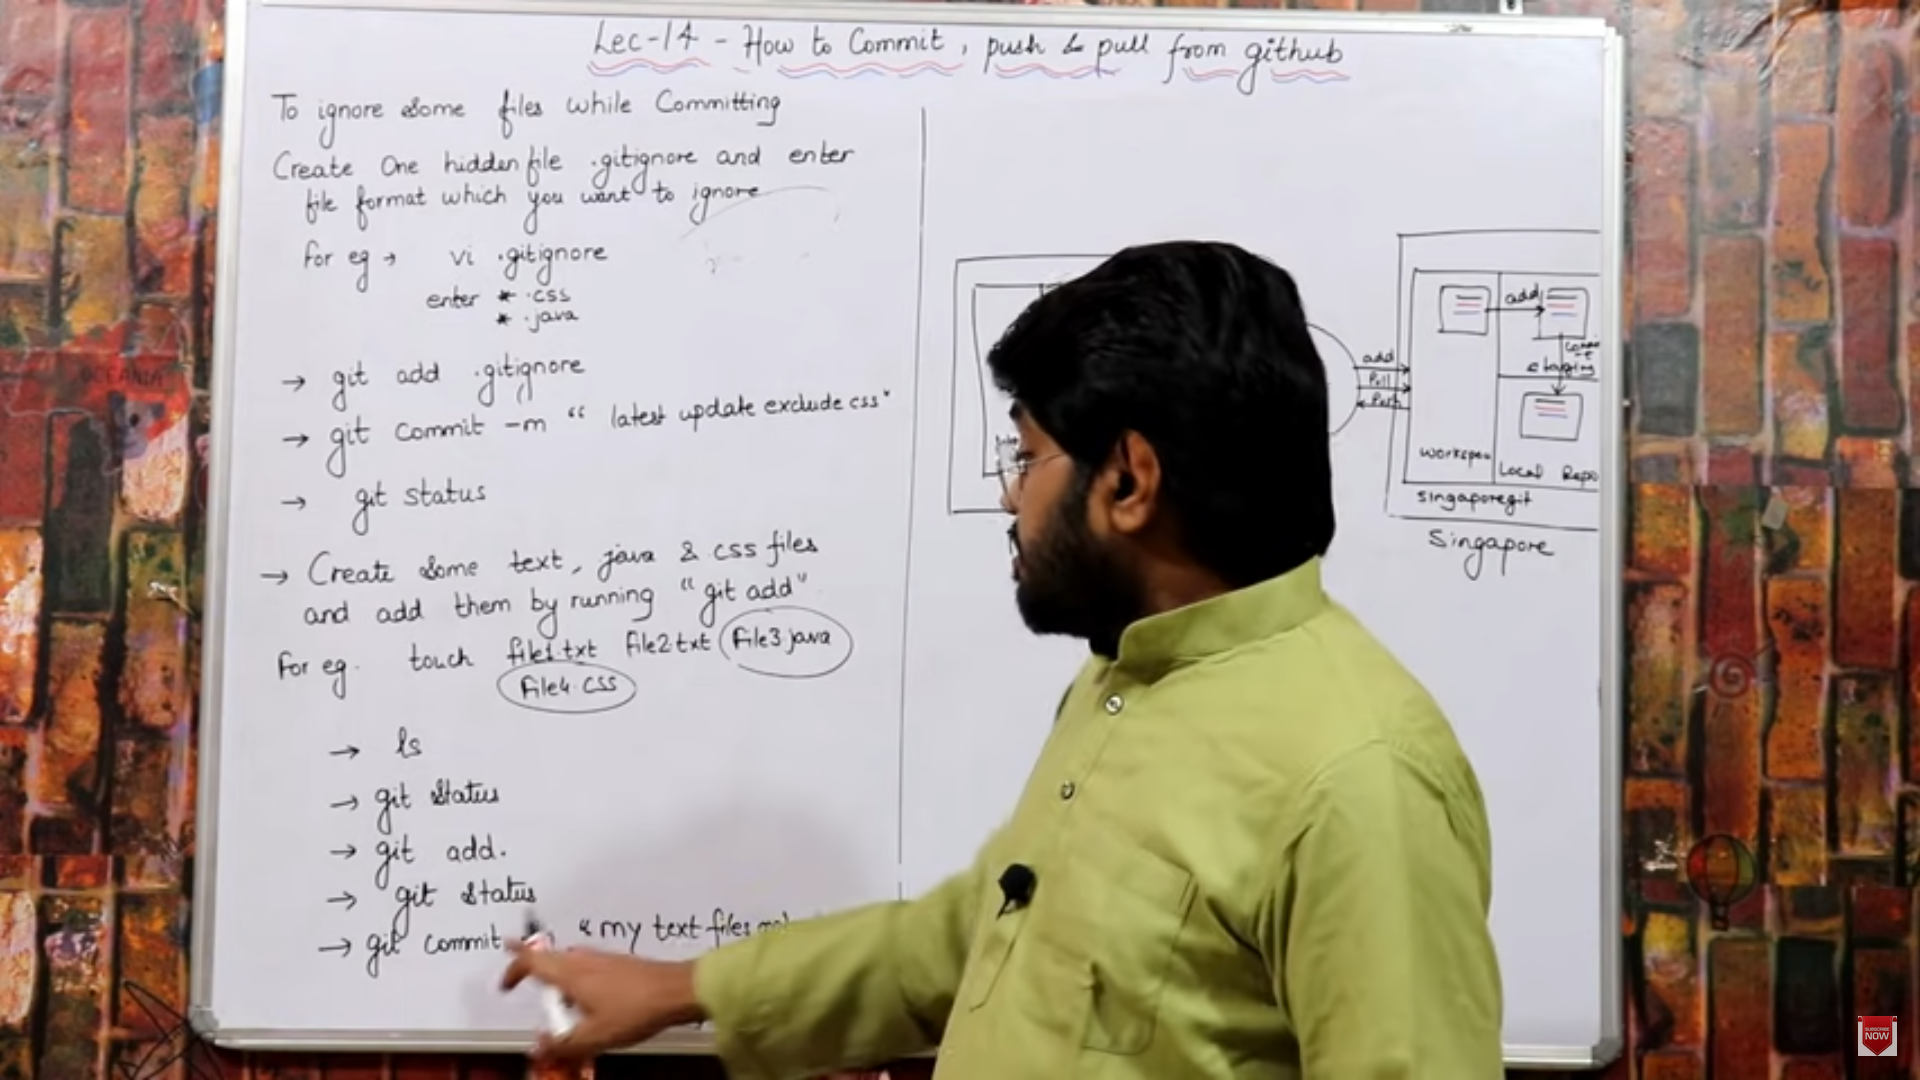 Lec-14 - How to Commit, push & pull from github
To ignore some files while Committing
Create One hidden file .gitignore and enter
file format which you want to ignore
For eg → vi .gitignore
enter * .css
* .java
→ git add .gitignore
→ git Commit -m " latest update exclude css"
→ git status
→ Create some text, java & css files
and add them by running "git add"
For eg. touch file1.txt File2.txt File3.java
File4.css
→ ls
→ git status
→ git add.
→ git status
→ git commit " my text files
add
Pull
Push
add
staging
workspac
Local Repo
Singaporegit
Singapore
OCEANIA
SUBSCRIBE
NOW